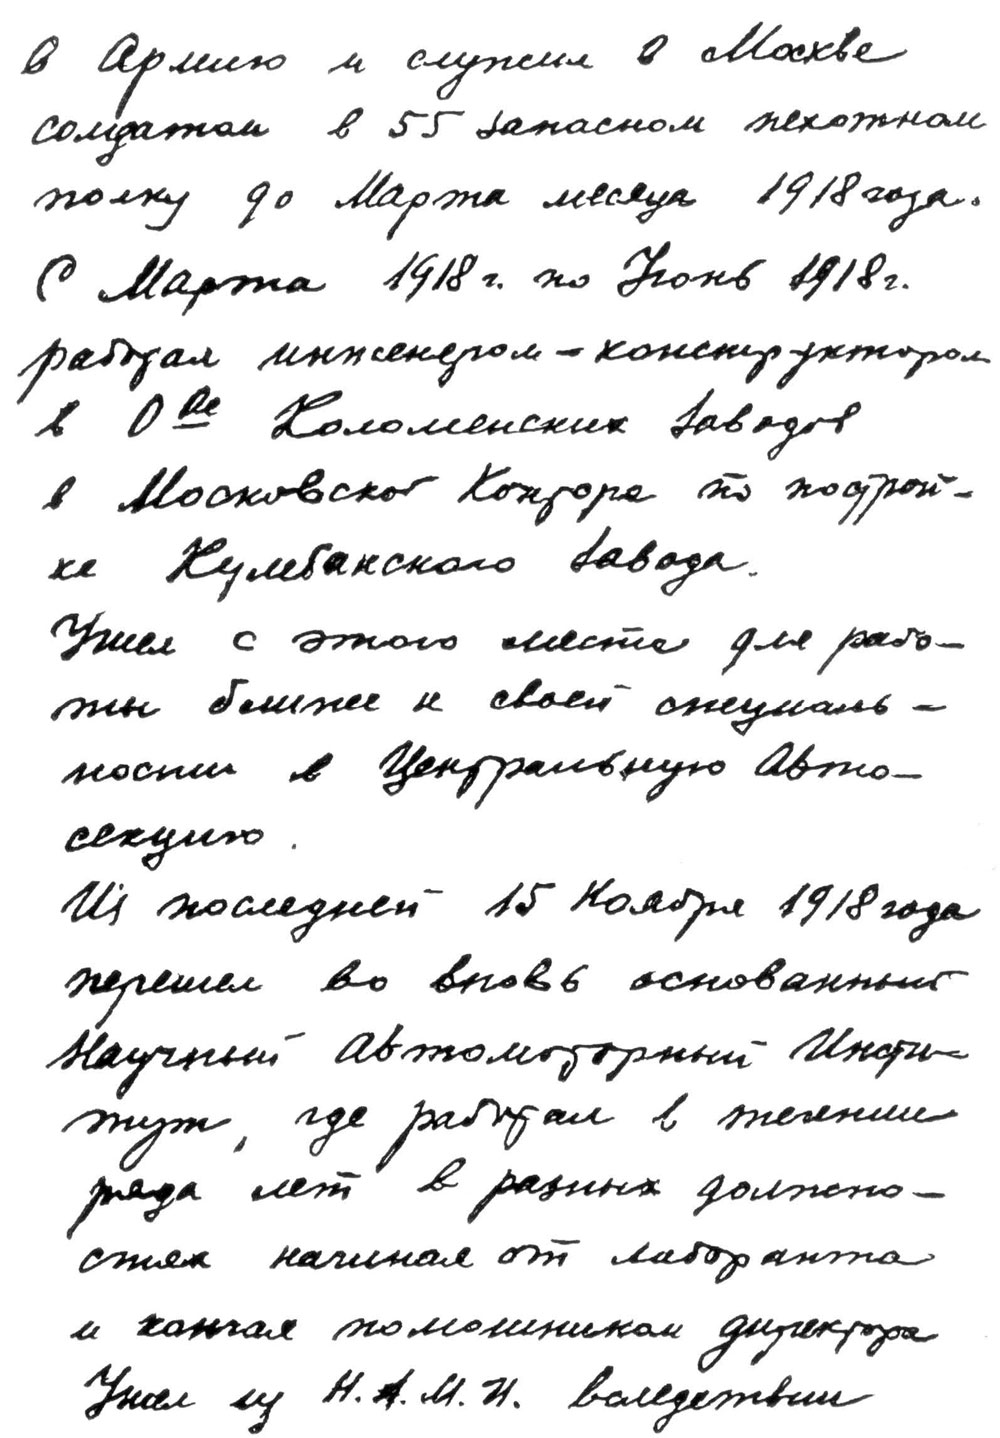 в Армию и служил в Москве
солдатом в 55 запасном пехотном
полку до Марта месяца 1918 года.
С Марта 1918 г. по Июнь 1918 г.
работал инженером-конструктором
в О ве Коломенских Заводов
в Московской Конторе по построй-
ке Кулебакского Завода.
Ушел с этого места для рабо-
ты ближе к своей специаль-
ности в Центральную Авто-
секцию.
Из последней 15 Ноября 1918 года
перешел во вновь основанный
Научный Автомоторный Инсти-
тут, где работал в течении
ряда лет в разных должно-
стях начиная от лаборанта
и кончая помошником директора
Ушел из Н.А.М.И. вследствии